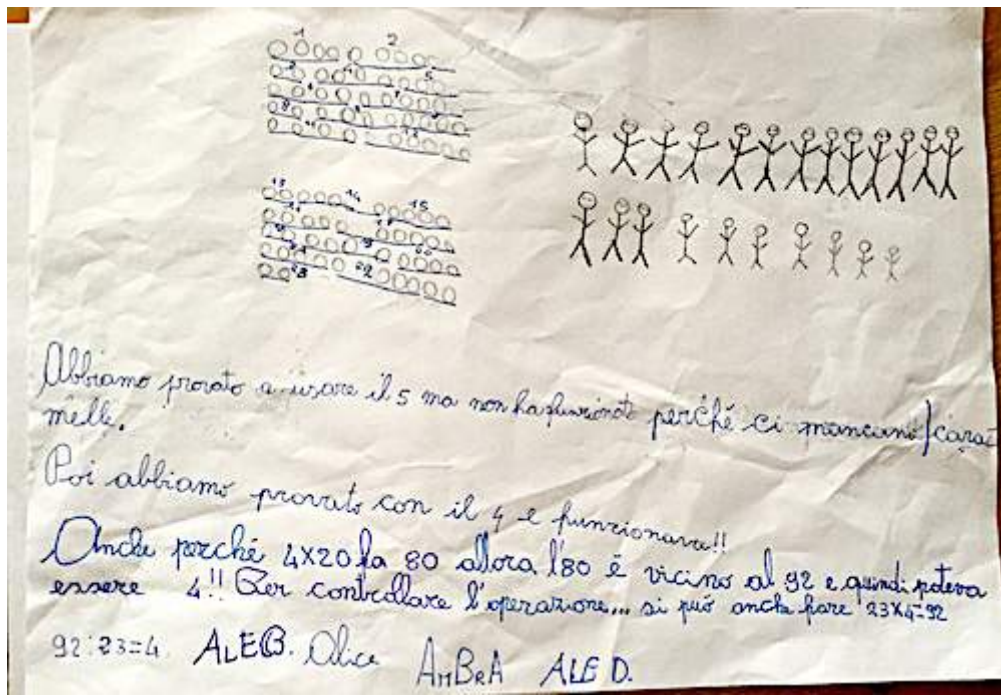 1 2
13 14 15
Abbiamo provato a usare il 5 ma non ha funzionato perché ci mancano cara
melle.
Poi abbiamo provato con il 4 e funzionava!!
Anche perché 4X20 fa 80 allora l'80 é vicino al 92 e quindi poteva
essere 4!! Per controllare l'operazione... si può anche fare 23X4=92
92:23=4. ALE B. Alice AMBRA ALE D.